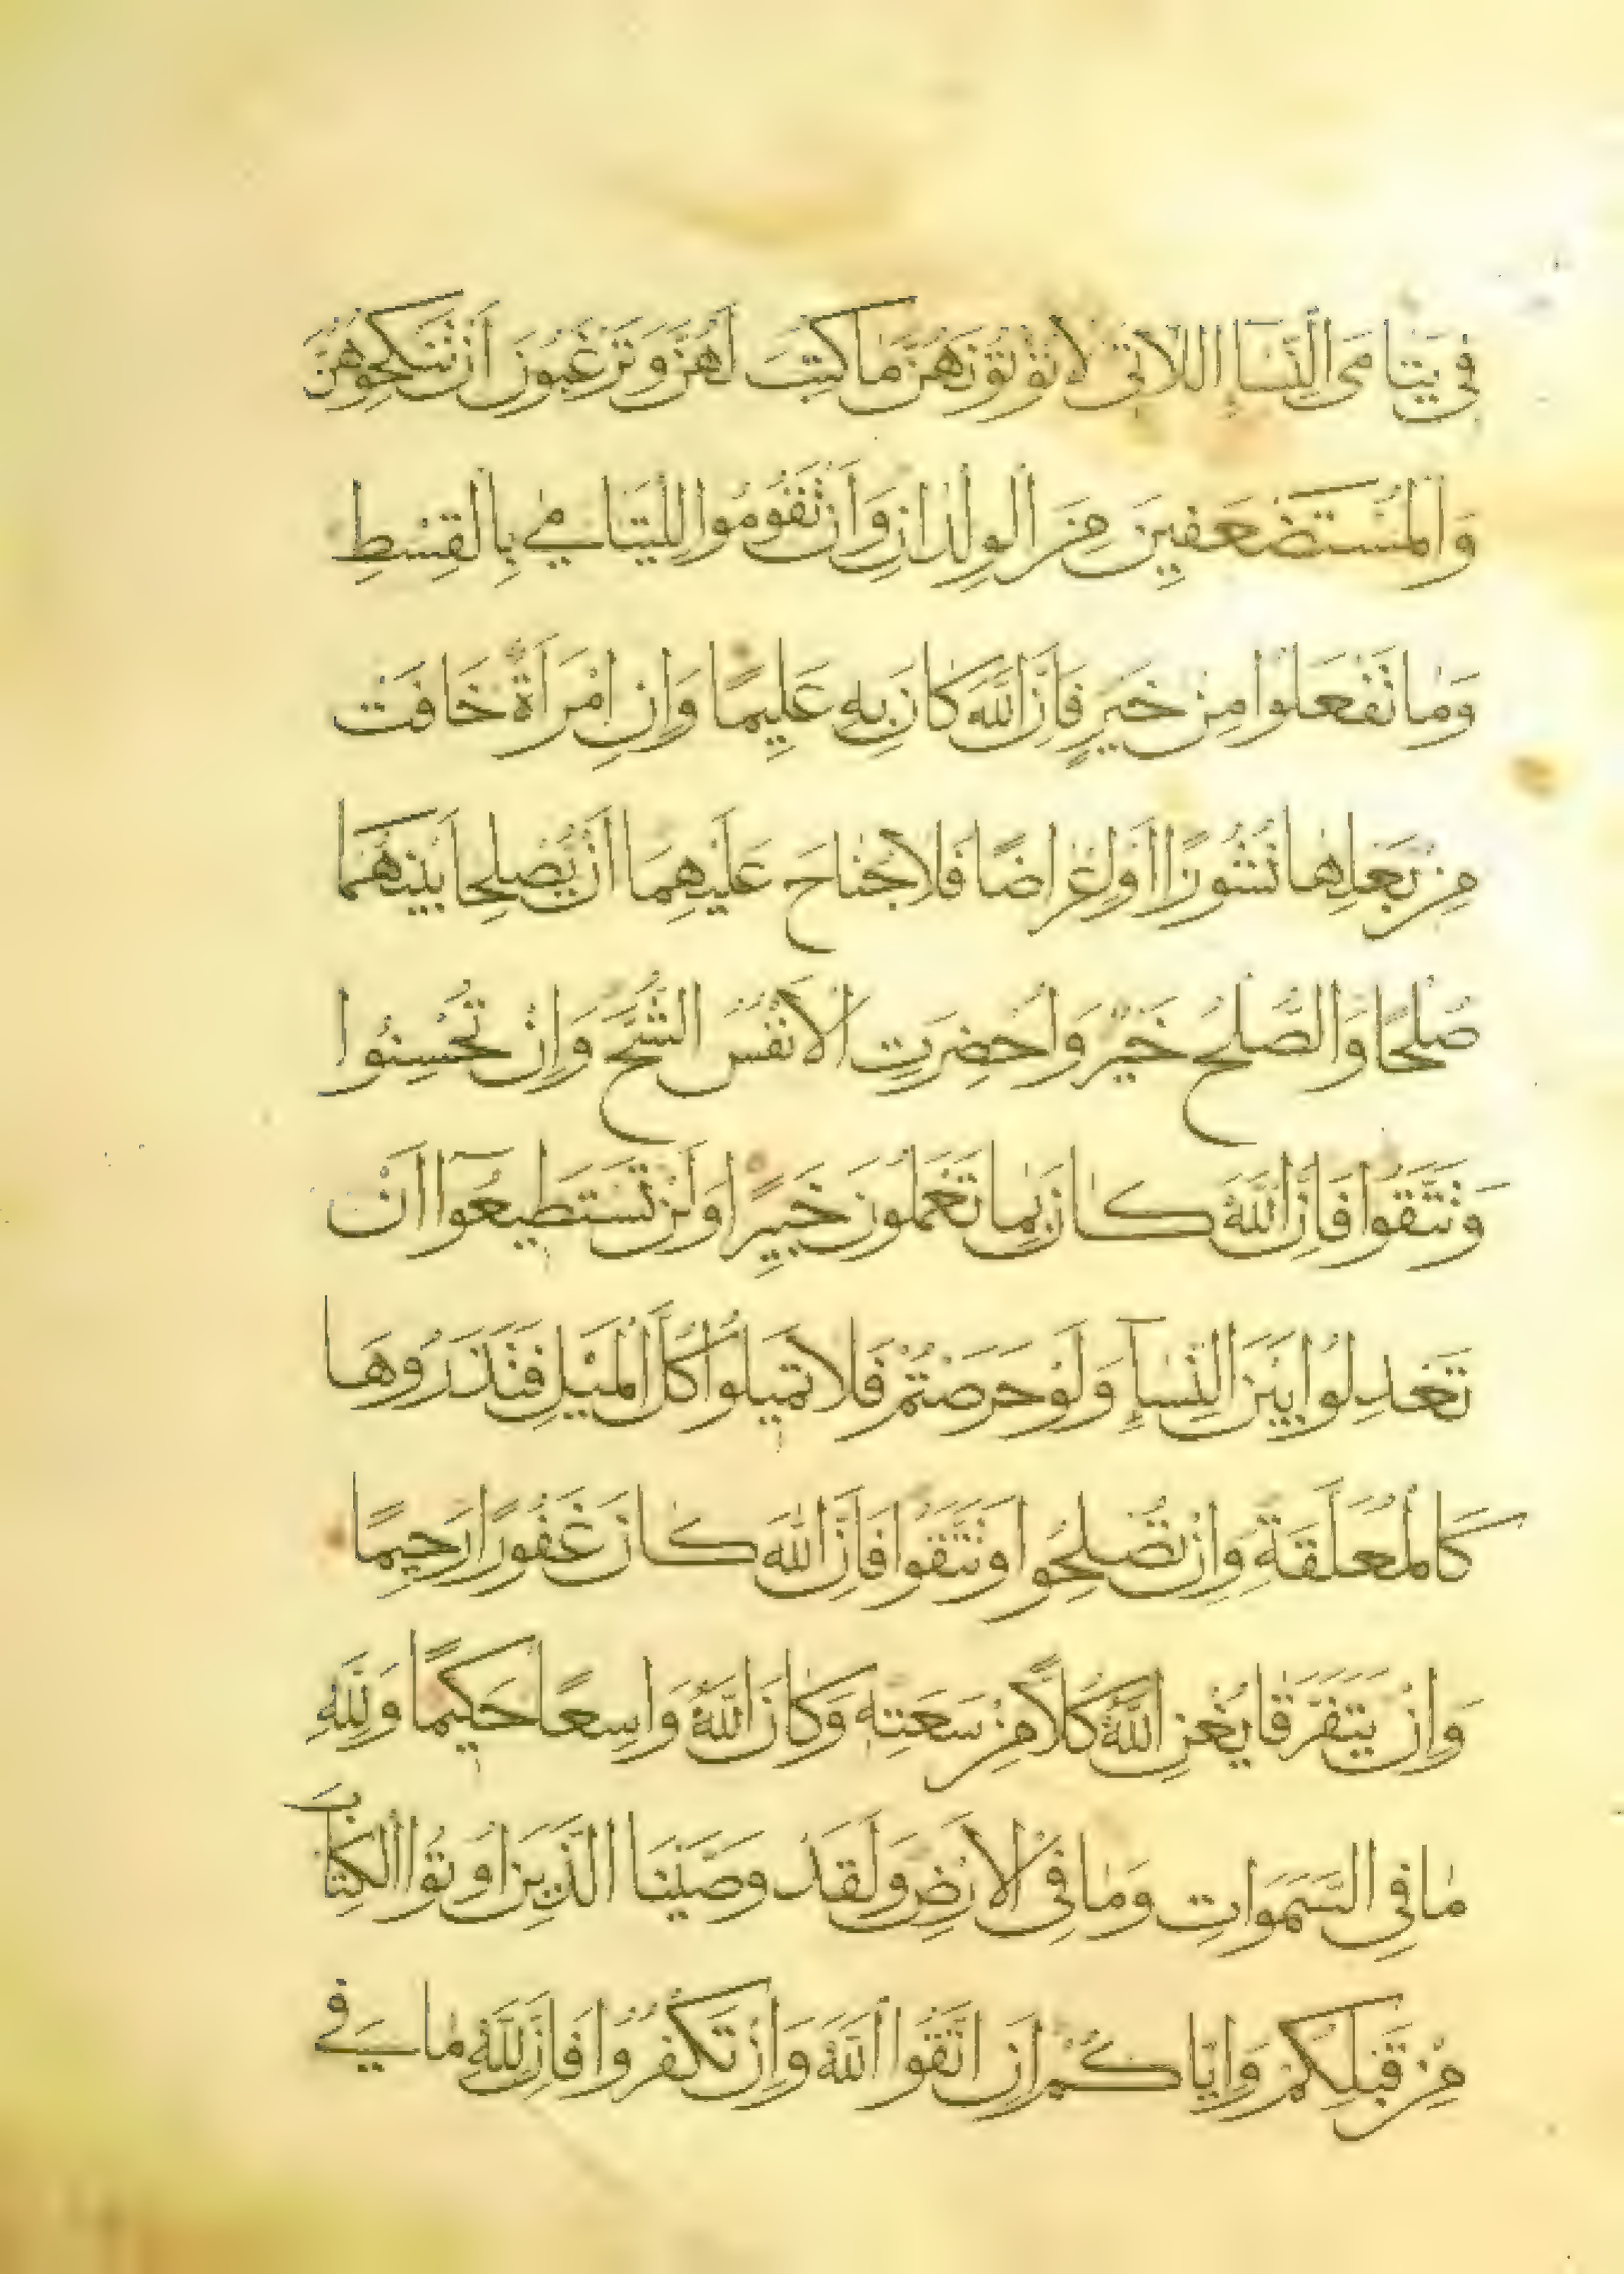 فِي يَتَامَى النِّسَاءِ اللَّاتِي لَا تُؤْتُونَهُنَّ مَا كُتِبَ لَهُنَّ وَتَرْغَبُونَ أَنْ تَنْكِحُوهُنَّ
وَالْمُسْتَضْعَفِينَ مِنَ الْوِلْدَانِ وَأَنْ تَقُومُوا لِلْيَتَامَى بِالْقِسْطِ
وَمَا تَفْعَلُوا مِنْ خَيْرٍ فَإِنَّ اللَّهَ كَانَ بِهِ عَلِيمًا وَإِنِ امْرَأَةٌ خَافَتْ
مِنْ بَعْلِهَا نُشُوزًا أَوْ إِعْرَاضًا فَلَا جُنَاحَ عَلَيْهِمَا أَنْ يُصْلِحَا بَيْنَهُمَا
صُلْحًا وَالصُّلْحُ خَيْرٌ وَأُحْضِرَتِ الْأَنْفُسُ الشُّحَّ وَإِنْ تُحْسِنُوا
وَتَتَّقُوا فَإِنَّ اللَّهَ كَانَ بِمَا تَعْمَلُونَ خَبِيرًا وَلَنْ تَسْتَطِيعُوا أَنْ
تَعْدِلُوا بَيْنَ النِّسَاءِ وَلَوْ حَرَصْتُمْ فَلَا تَمِيلُوا كُلَّ الْمَيْلِ فَتَذَرُوهَا
كَالْمُعَلَّقَةِ وَإِنْ تُصْلِحُوا وَتَتَّقُوا فَإِنَّ اللَّهَ كَانَ غَفُورًا رَحِيمًا
وَإِنْ يَتَفَرَّقَا يُغْنِ اللَّهُ كُلًّا مِنْ سَعَتِهِ وَكَانَ اللَّهُ وَاسِعًا حَكِيمًا وَلِلَّهِ
مَا فِي السَّمَوَاتِ وَمَا فِي الْأَرْضِ وَلَقَدْ وَصَّيْنَا الَّذِينَ أُوتُوا الْكِتَابَ
مِنْ قَبْلِكُمْ وَإِيَّاكُمْ أَنِ اتَّقُوا اللَّهَ وَإِنْ تَكْفُرُوا فَإِنَّ لِلَّهِ مَا فِي